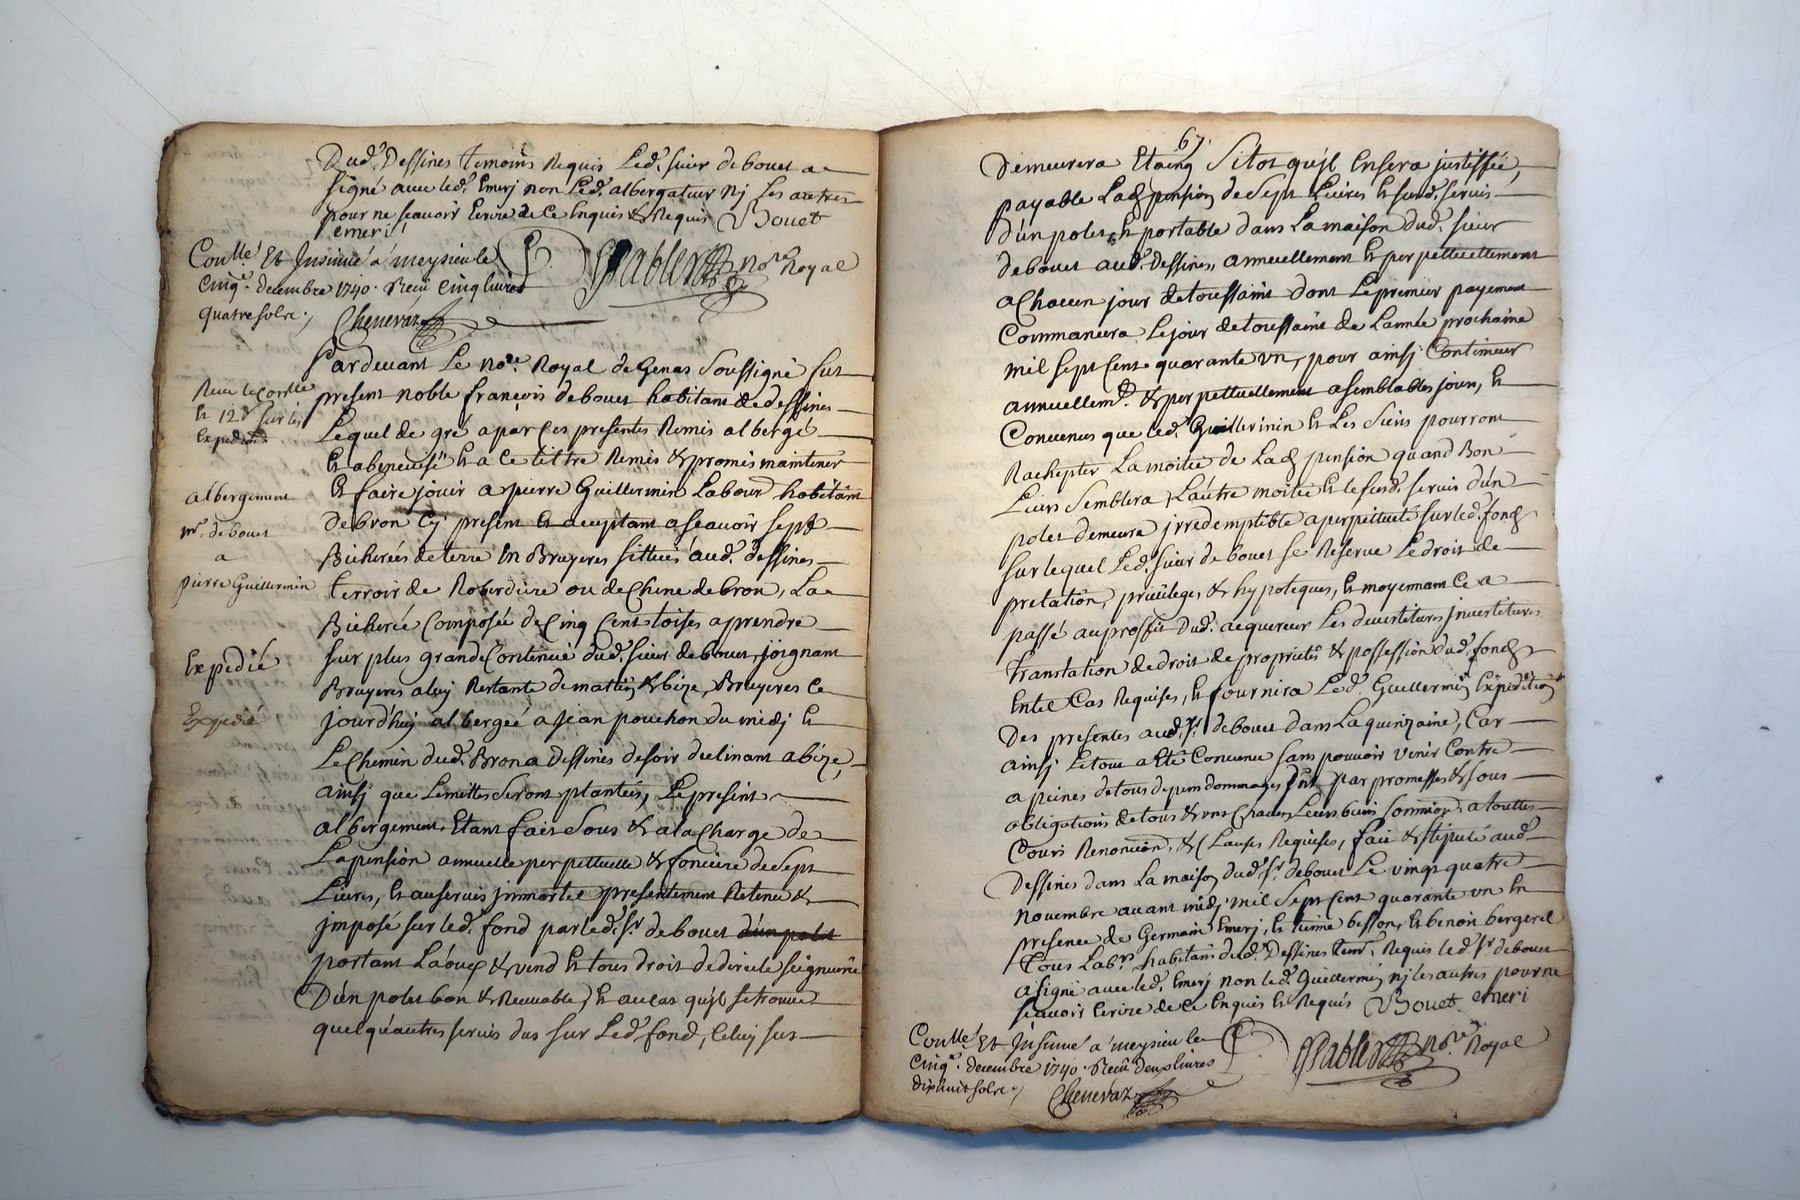 Dud. Dessines temoins Requis Led. sieur de bouet a
signé avec led. Emerj non Led. albergataire Nj Les autres
pour ne scavoir Ecrire de Ce Enquis & Requis Bouet
emeri
Conllé Et Insinué a meysieu le
Cinq. decembre 1740. Recu Cinq livres
quatre sols.
Chenevaz
Nore Royal
Pardevant Le Nore. Royal de Genas Soussigné fut
present noble francois de bouet habitant de dessines
Lequel de gré a par Ces presentes Remis albergé
Et abenevisé Et a Ce tittre Remis & promis maintenir
Et faire jouir a pierre Guillermin Labour. habitant
de bron Cy present Et acceptant a scavoir Sept
Bicherées de terre En Bruyeres Sittues aud. dessines
terroir de ou de Chine de bron, La
Bicherée Composée de Cinq Cent toises a prendre
sur plus grande Contenue dud. sieur de bouet, joignant
Bruyeres a luy Restante de matin & bize, Bruyeres Ce
jourd'huy albergée a jean pouchon du midj Et
Le Chemin dud. Bron a Dessines de soir a bize,
ainsj que Limittes Seront plantées, Le present
albergement Etant fait Sous & a la Charge de
La pension annuelle perpettuelle & fonciere de Sept
Livres, Et au servis jmposé presentement Retenu &
jmposé sur led. fond par led. sr. de bouet
portant & vend Et tous droit de directe seigneurie
D'un polet bon & Recevable, Et au cas qu'jl se trouve
quelqu'autres servis dus sur Led. fond, Celuy sus
Et 12d sur les
albergement
mr. de bouet
a
pierre Guillermin
Expedié
Expedié
67.
Demeurera Etaing Sitot qu'jl En sera justiffié,
payable Lad. pension de Sept Livres Et susd. servis
D'un polet Et portable dans La maison dud. sieur
de bouet aud. dessines, annuellement Et perpettuellement
a Chacun jour de toussaint dont Le premier payement
Commancera Le jour de toussaint de L'année prochaine
mil Sept Cent quarante un, pour ainsj Continuer
annuellemt. & perpettuellement a semblables jours, Et
Convenus que led. Guillermin Et Les Siens pourront
Rachepter La moitié de Lad. pension quand Bon
Leurs Semblera, L'autre moitié Et le susd. servis d'un
polet demeure jrredemptible a perpettuité sur led. fond
sur lequel Led. sieur de bouet se Reserve Le droit de
prelation, privileges & hypoteques, Et moyennant Ce a
passé au proffit Dud. acquereur Les devestitures jnvestitures
Translation de droit de proprietté & possession dud. fond
En tel Cas Requises, Et fournira Led. Guillermin Expedition
Des presentes aud. sr. de bouet dans La quinzaine, Car
ainsj Le tout a Eté Convenu Sans pouvoir Venir Contre
a peines de tous depens dommages par promesses & sous
obligations de tous & uns Chacun Leurs biens a touttes
Cours Renonciaon. & Clauses Requises, fait & stipulé aud.
Dessines dans La maison dud. sr. de bouet Le vingt quatre
novembre avant midj mil Sept Cent quarante un En
presence de Germain Emerj, Etienne besson, Et benoit bergeret
Tous Labrs. habitans dud. Dessines tems. Requis led. sr de bouet
a signé avec led. Emerj non led. Guillermin nj les autres pour ne
scavoir Ecrire de Ce Enquis Et Requis Bouet emeri
Conllé Et Insinué a meysieu le
Cinq. decembre 1740. Recu deux livres
dix huit sols.
Chenevaz
Nore Royal